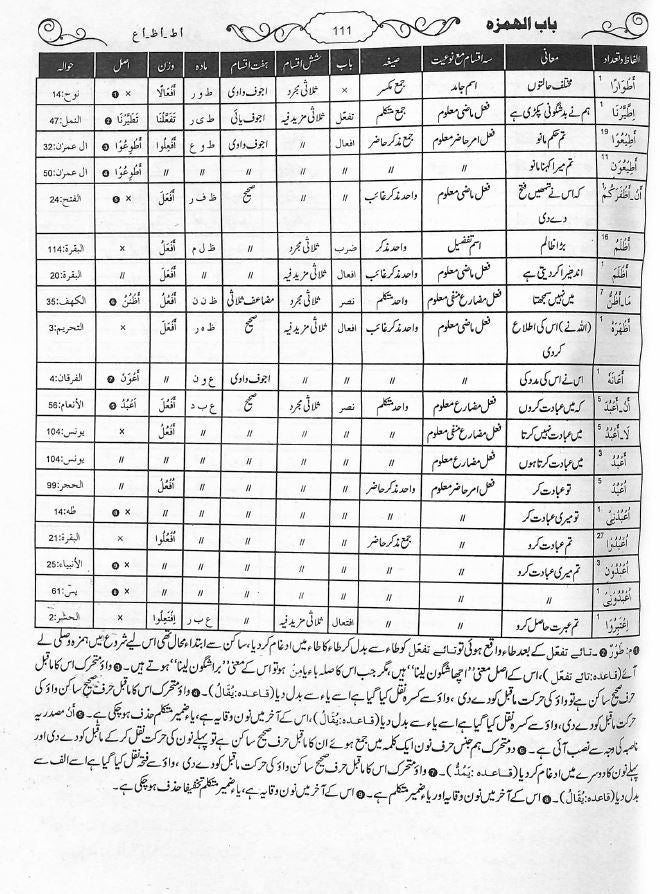 باب الهمزه
111
اط۔اظ۔اع
الفاظ و تعداد | معانی | سہ اقسام مع نوعیت | صیغہ | باب | شش اقسام | ہفت اقسام | مادہ | وزن | اصل | حوالہ
أَطْوَارًا 1 | مختلف حالتوں | اسم جامد | جمع مکسر | × | ثلاثی مجرد | اجوف واوی | ط و ر | أَفْعَالًا | × ❶ | نوح:14
اطَّيَّرْنَا 1 | ہم نے بدشگونی پکڑی ہے | فعل ماضی معلوم | جمع متکلم | تفعّل | ثلاثی مزید فیہ | اجوف یائی | ط ی ر | تَفَعَّلْنَا | تَطَيَّرْنَا ❷ | النمل:47
أَطِيْعُوْا 19 | تم حکم مانو | فعل امر حاضر معلوم | جمع مذکر حاضر | افعال | // | اجوف واوی | ط و ع | أَفْعِلُوا | أَطْوِعُوْا ❸ | ال عمرٰن:32
أَطِيْعُوْنِ 11 | تم میرا کہنا مانو | // | // | // | // | // | // | // | أَطْوِعُوْا ❹ | ال عمرٰن:50
أَنْ۔أَظْفَرَكُمْ 1 | کہ اس نے تمھیں فتح | فعل ماضی معلوم | واحد مذکر غائب | // | // | صحیح | ظ ف ر | أَفْعَلَ | × ❺ | الفتح:24
دے دی
أَظْلَمُ 16 | بڑا ظالم | اسم تفضیل | واحد مذکر | ضرب | ثلاثی مجرد | // | ظ ل م | أَفْعَلُ | × | البقرة:114
أَظْلَمَ 1 | اندھیرا کر دیتی ہے | فعل ماضی معلوم | واحد مذکر غائب | افعال | ثلاثی مزید فیہ | // | // | أَفْعَلَ | // | البقرة:20
مَا۔أَظُنُّ 7 | میں نہیں سمجھتا | فعل مضارع منفی معلوم | واحد متکلم | نصر | ثلاثی مجرد | مضاعف ثلاثی | ظ ن ن | أَفْعُلُ | أَظْنُنُ ❻ | الكهف:35
أَظْهَرَهُ 1 | (اللہ نے) اس کی اطلاع | فعل ماضی معلوم | واحد مذکر غائب | افعال | ثلاثی مزید فیہ | صحیح | ظ ہ ر | أَفْعَلَ | × | التحریم:3
کر دی
أَعَانَهُ 1 | اس نے اس کی مدد کی | // | // | // | // | اجوف واوی | ع و ن | // | أَعْوَنَ ❼ | الفرقان:4
أَنْ۔أَعْبُدَ 5 | کہ میں عبادت کروں | فعل مضارع معلوم | واحد متکلم | نصر | ثلاثی مجرد | صحیح | ع ب د | أَفْعُلَ | أَعْبُدُ ❺ | الأنعام:56
لَا۔أَعْبُدُ 5 | میں عبادت نہیں کرتا | فعل مضارع منفی معلوم | // | // | // | // | // | أَفْعُلُ | × | یونس:104
أَعْبُدُ 3 | میں عبادت کرتا ہوں | فعل مضارع معلوم | // | // | // | // | // | // | // | یونس:104
أُعْبُدْ 5 | تو عبادت کر | فعل امر حاضر معلوم | واحد مذکر حاضر | // | // | // | // | أُفْعُلْ | // | الحجر:99
أُعْبُدْنِیْ 1 | تو میری عبادت کر | // | // | // | // | // | // | // | × ❽ | طه:14
أُعْبُدُوْا 27 | تم عبادت کرو | // | جمع مذکر حاضر | // | // | // | // | أُفْعُلُوا | × | البقرة:21
أُعْبُدُوْنِ 3 | تم میری عبادت کرو | // | // | // | // | // | // | // | × ❾ | الأنبياء:25
أُعْبُدُوْنِیْ 1 | // | // | // | // | // | // | // | // | × ❽ | یس:61
اِعْتَبِرُوْا 1 | تم عبرت حاصل کرو | // | // | افتعال | ثلاثی مزید فیہ | // | ع ب ر | اِفْتَعِلُوا | × | الحشر:2
❶ م: طَوْرٌ ❷ ۔ تائے تَفَعُّل کے بعد طاء واقع ہوئی تو تائے تفعّل کو طاء سے بدل کر طاء کا طاء میں ادغام کر دیا، ساکن سے ابتداء محال تھی اس لیے شروع میں ہمزہ وصلی لے
آئے (قاعدہ: تائے تفعّل)، اس کے اصل معنی ’’اچھا شگون لینا‘‘ ہیں، مگر جب اس کا صلہ باء یا مِن ہو تو اس کے معنی ’’برا شگون لینا‘‘ ہوتے ہیں۔ ❸ واؤ متحرک اس کا ماقبل
حرف صحیح ساکن ہے تو واؤ کی حرکت ماقبل کو دے دی، واؤ سے کسرہ نقل کیا گیا ہے اسے یاء سے بدل دیا (قاعدہ: یُقَالُ)۔ ❹ واؤ متحرک اس کا ماقبل حرف صحیح ساکن واؤ کی
حرکت ماقبل کو دے دی، واؤ سے کسرہ نقل کیا گیا ہے اسے یاء سے بدل دیا (قاعدہ: یُقَالُ)، اس کے آخر میں نون وقایہ ہے، یاء ضمیر متکلم حذف ہو چکی ہے۔ ❺ أَنْ مصدریہ
ناصبہ کی وجہ سے نصب آئی ہے۔ ❻ دو متحرک ہم جنس حرف نون ایک کلمہ میں جمع ہوئے ان کا ماقبل حرف صحیح ساکن ہے تو پہلے نون کی حرکت نقل کر کے ماقبل کو دے دی اور
پہلے نون کا دوسرے میں ادغام کر دیا (قاعدہ: یَمُدُّ)۔ ❼ واؤ متحرک اس کا ماقبل حرف صحیح ساکن واؤ کی حرکت ماقبل کو دے دی، واؤ سے فتحہ نقل کیا گیا ہے اسے الف سے
بدل دیا (قاعدہ: یُقَالُ)۔ ❽ اس کے آخر میں نون وقایہ اور یاء ضمیر متکلم ہے۔ ❾ اس کے آخر میں نون وقایہ ہے، یاء ضمیر متکلم تخفیفا حذف ہو چکی ہے۔